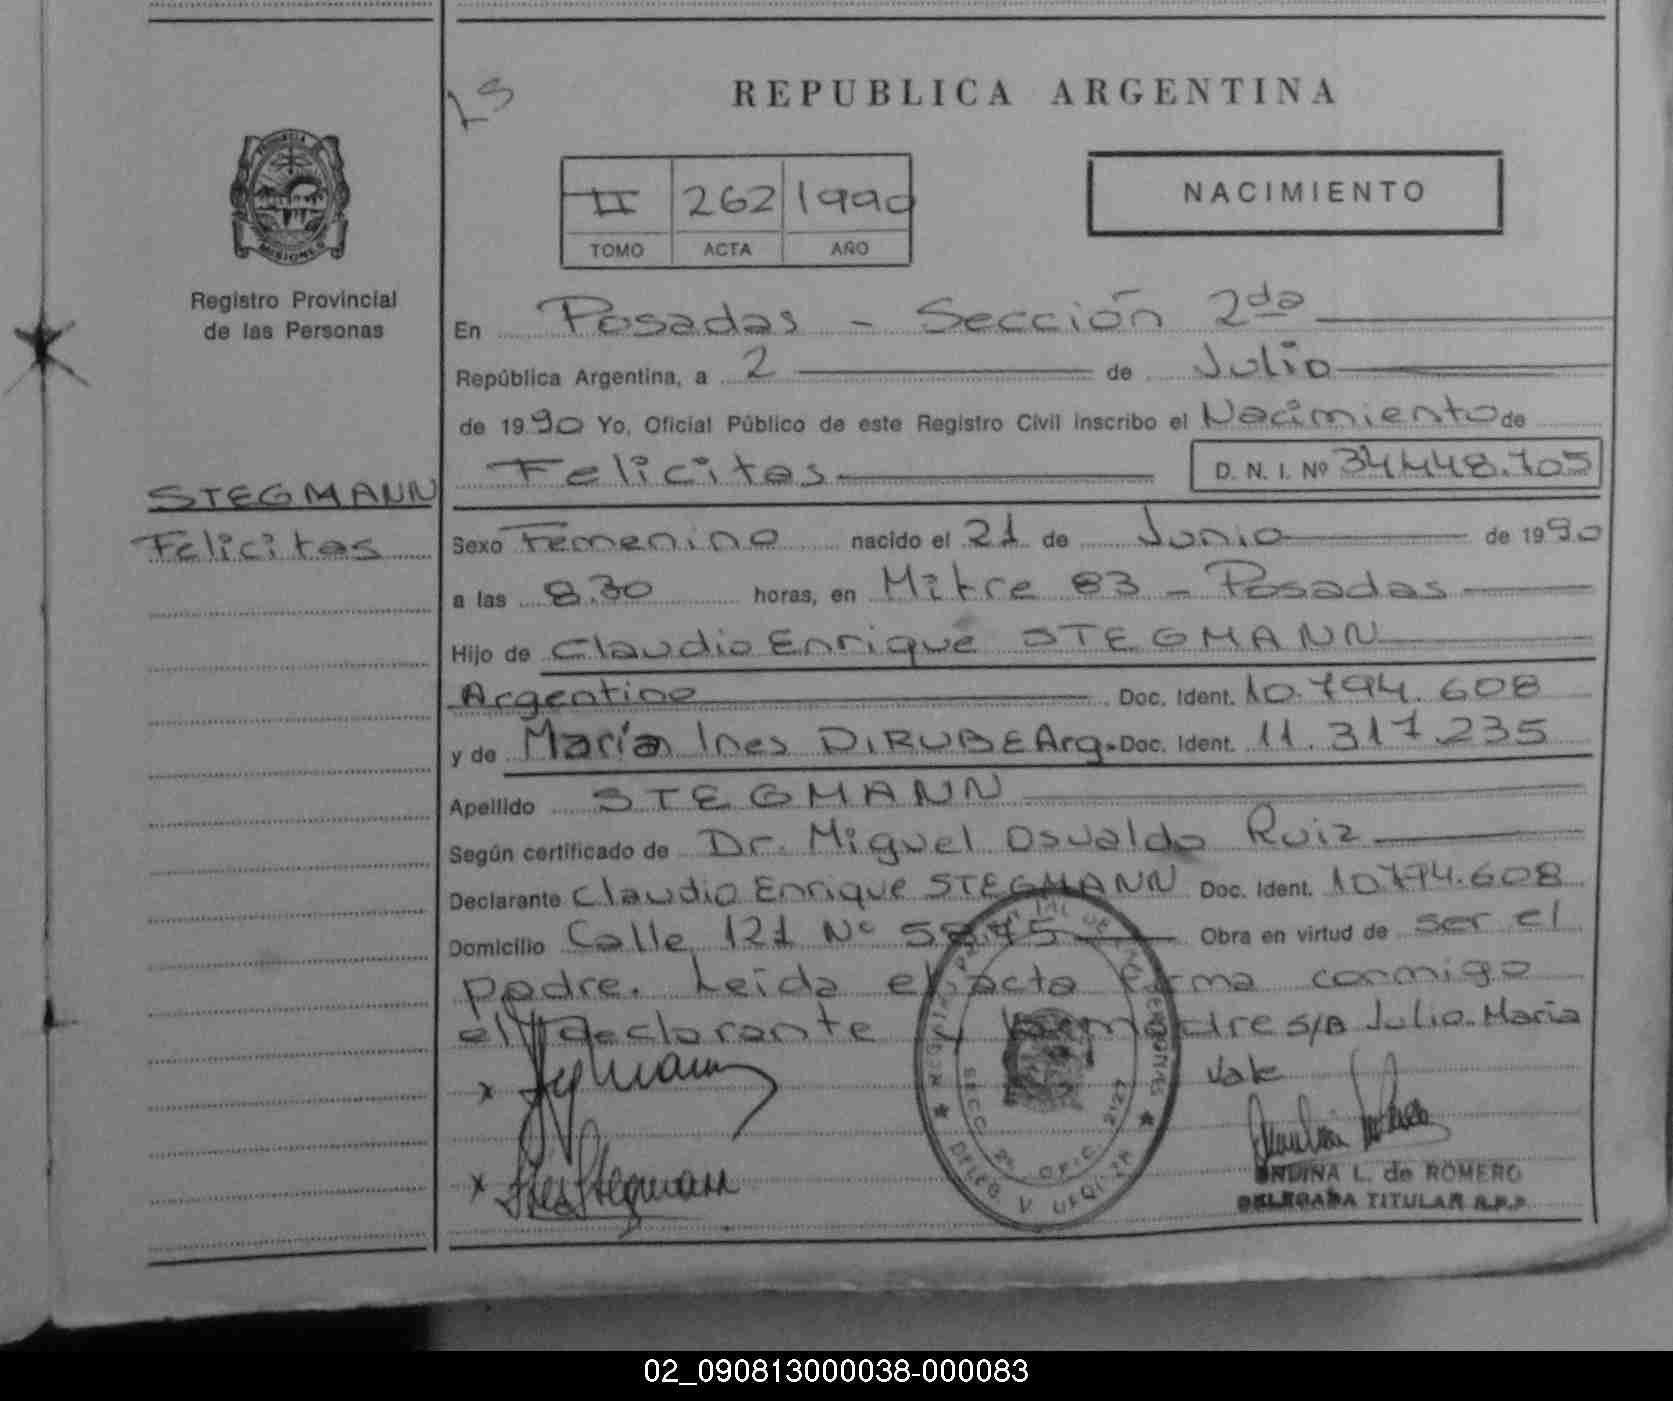 REPUBLICA ARGENTINA
PROVINCIA
MISIONES
Registro Provincial
de las Personas
STEGMANN
Felicitas
II 262 1990
TOMO ACTA AÑO
NACIMIENTO
En Posadas - Sección 2da
República Argentina, a 2 de Julio
de 1990 Yo, Oficial Público de este Registro Civil inscribo el Nacimiento de
Felicitas D. N. I. Nº 34.448.705
Sexo Femenino nacido el 21 de Junio de 1990
a las 8.30 horas, en Mitre 83 - Posadas
Hijo de Claudio Enrique STEGMANN
Argentino Doc. Ident. 10.794.608
y de María Ines DIRUBE Arg. Doc. Ident. 11.317.235
Apellido STEGMANN
Según certificado de Dr. Miguel Osvaldo Ruiz
Declarante Claudio Enrique STEGMANN Doc. Ident. 10.794.608
Domicilio Calle 121 Nº Obra en virtud de ser el
padre. Leida el acta firma conmigo
el declarante y la madre S/B Julio. María
Vale
Stegmann
Ines Stegmann
SECC. 2ª OFIC. 2127
DELEG. V. URQUIZA
ONDINA L. de ROMERO
DELEGADA TITULAR R.P.P.
02_090813000038-000083